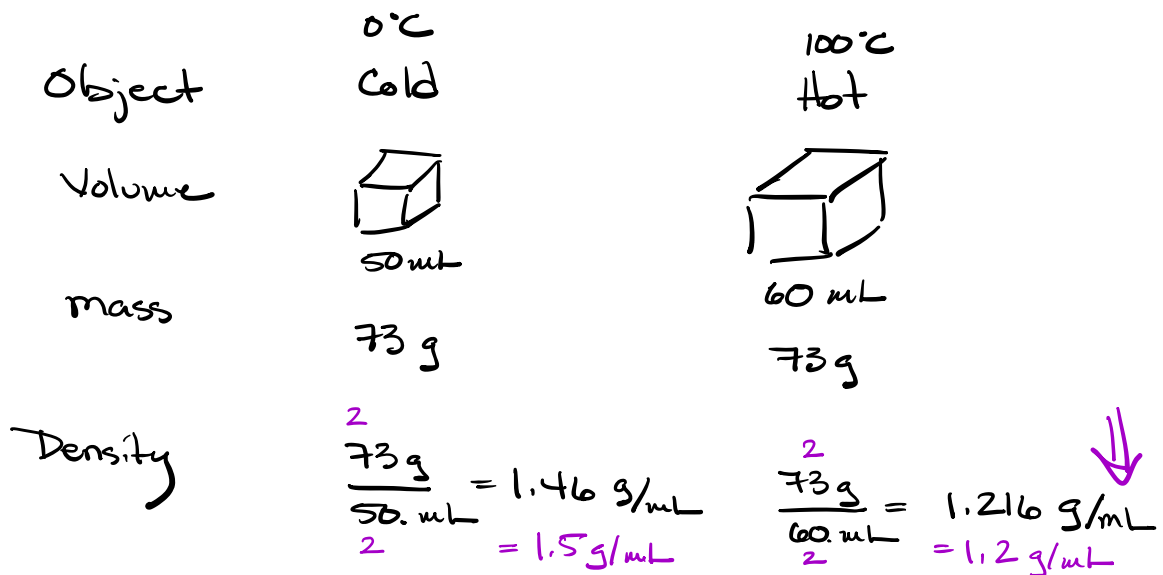 0°C 100°C
Object Cold Hot
Volume
50 mL 60 mL
mass
73 g 73 g
2 2
Density 73 g / 50. mL = 1.46 g/mL 73 g / 60. mL = 1.216 g/mL
2 = 1.5 g/mL 2 = 1.2 g/mL